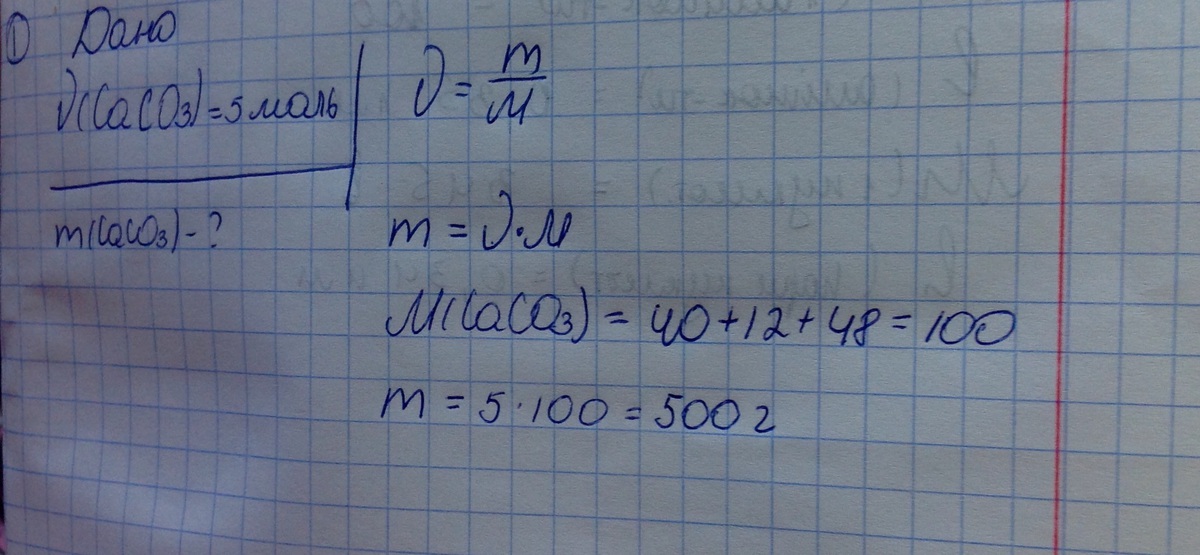 ① Дано
ν(CaCO₃) = 5 моль
m(CaCO₃) - ?
ν = m/M
m = ν · M
M(CaCO₃) = 40 + 12 + 48 = 100
m = 5 · 100 = 500 г